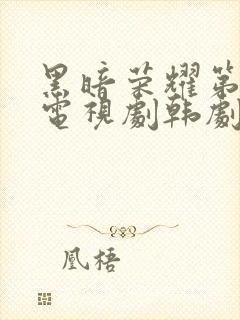 黑暗荣耀第
電視劇韩劇
凰梧